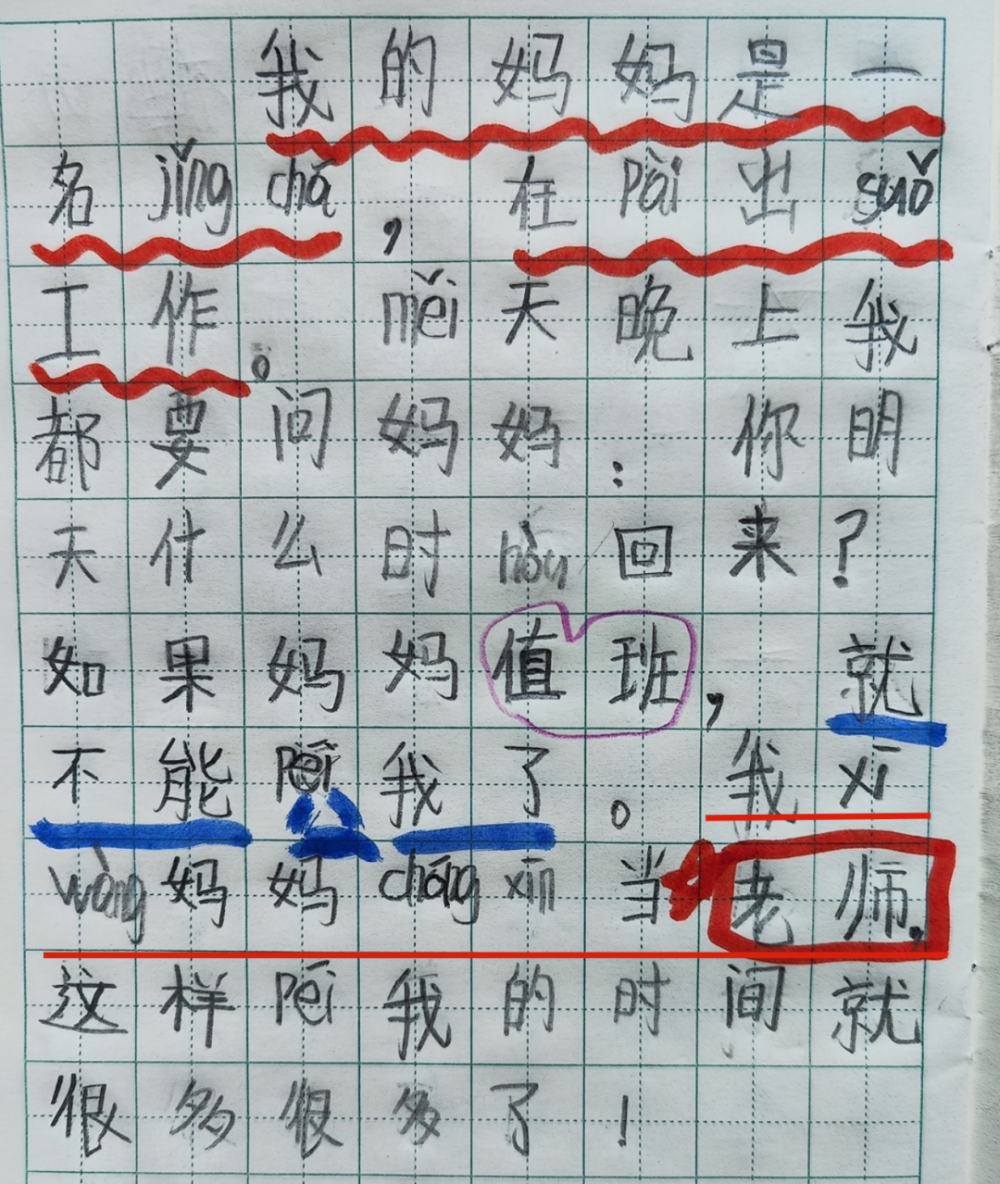 我的妈妈是一
名jǐng chá，在pài出suǒ
工作。měi天晚上我
都要问妈妈：你明
天什么时hòu回来？
如果妈妈值班，就
不能péi我了。我xī
wàng妈妈chóng xīn当老师，
这样péi我的时间就
很多很多了！